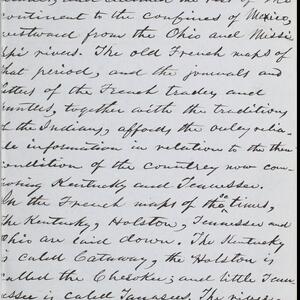 continent to the confines of Mexico,
westward from the Ohio and Missi
ippi rivers. The old French maps of
that period, and the journals and
letters of the French traders and
hunters, together with the traditions
of the Indians, affords the only relia-
ble information in relation to the then
condition of the country now com-
posing Kentucky and Tennessee.
In the French maps of the times,
the Kentucky, Holston, Tennessee and
Ohio are laid down. The Kentucky
is caled Cataway, the Holston is
called the Cherokee; and little Tenn
essee is caled Tanassees. The rivers